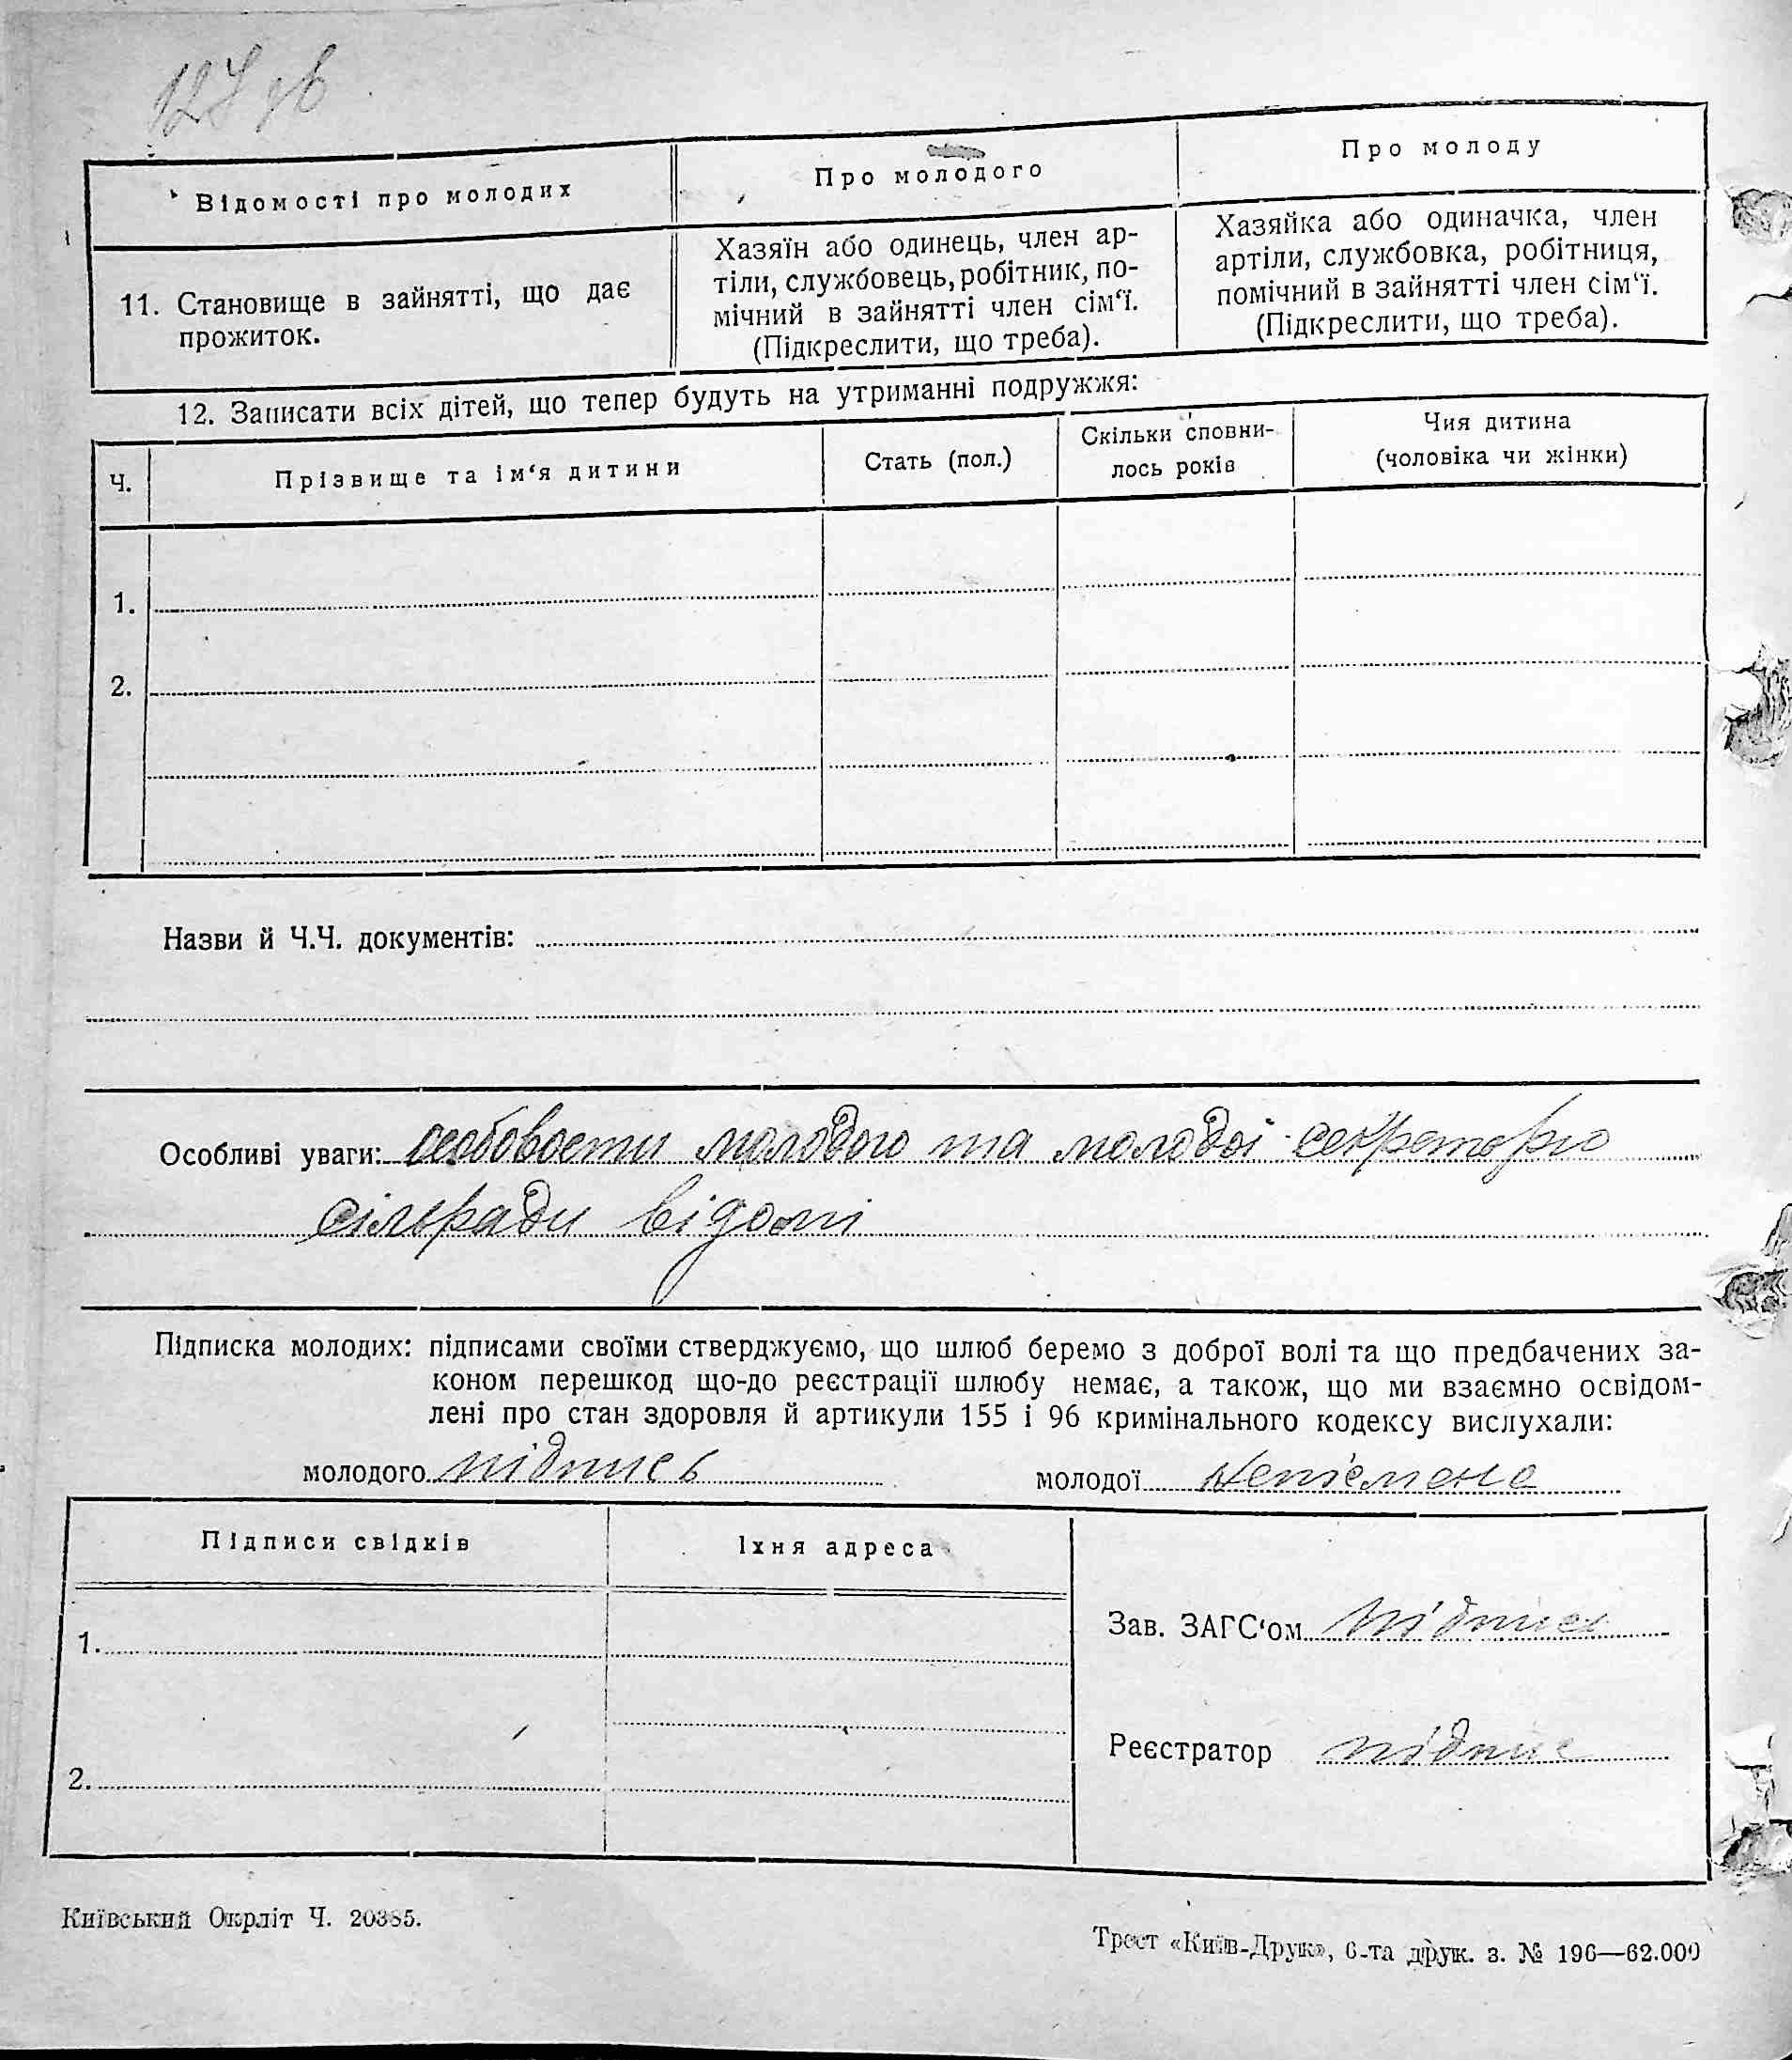 127 зв
Відомості про молодих
Про молодого
Про молоду
11. Становище в зайнятті, що дає
прожиток.
Хазяїн або одинець, член ар-
тіли, службовець, робітник, по-
мічний в зайнятті член сім‘ї.
(Підкреслити, що треба).
Хазяйка або одиначка, член
артіли, службовка, робітниця,
помічний в зайнятті член сім‘ї.
(Підкреслити, що треба).
12. Записати всіх дітей, що тепер будуть на утриманні подружжя:
Ч.
Прізвище та ім‘я дитини
Стать (пол.)
Скільки сповни-
лось років
Чия дитина
(чоловіка чи жінки)
1.
2.
Назви й Ч.Ч. документів:
Особливі уваги: особовости молодого та молодої секретарю
сільради відомі
Підписка молодих: підписами своїми стверджуємо, що шлюб беремо з доброї волі та що предбачених за-
коном перешкод що-до реєстрації шлюбу немає, а також, що ми взаємно освідом-
лені про стан здоровля й артикули 155 і 96 кримінального кодексу вислухали:
молодого підпись молодої неписмена
Підписи свідків
Їхня адреса
1.
2.
Зав. ЗАГС‘ом підпись
Реєстратор підпис
Київський Окрліт Ч. 20385.
Трест «Київ-Друк», 6-та друк. з. № 196—62.000